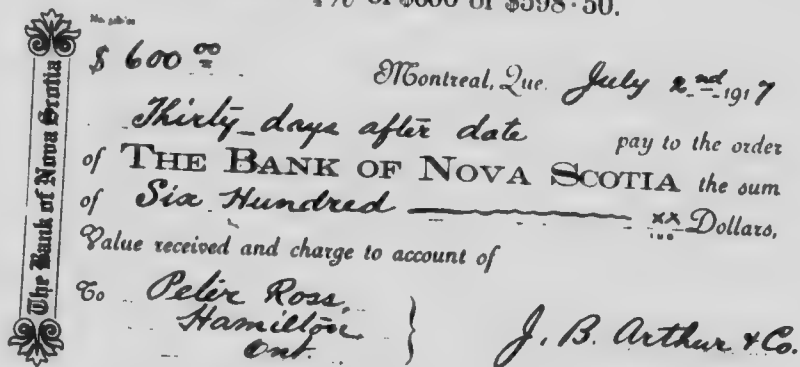 of $600 or $598.50.
$ 600 00
Montreal, Que. July 2nd 1917
Thirty days after date pay to the order
of THE BANK OF NOVA SCOTIA the sum
of Six Hundred xx Dollars,
Value received and charge to account of
To Peter Ross,
Hamilton
Ont.
J. B. Arthur & Co.
The Bank of Nova Scotia